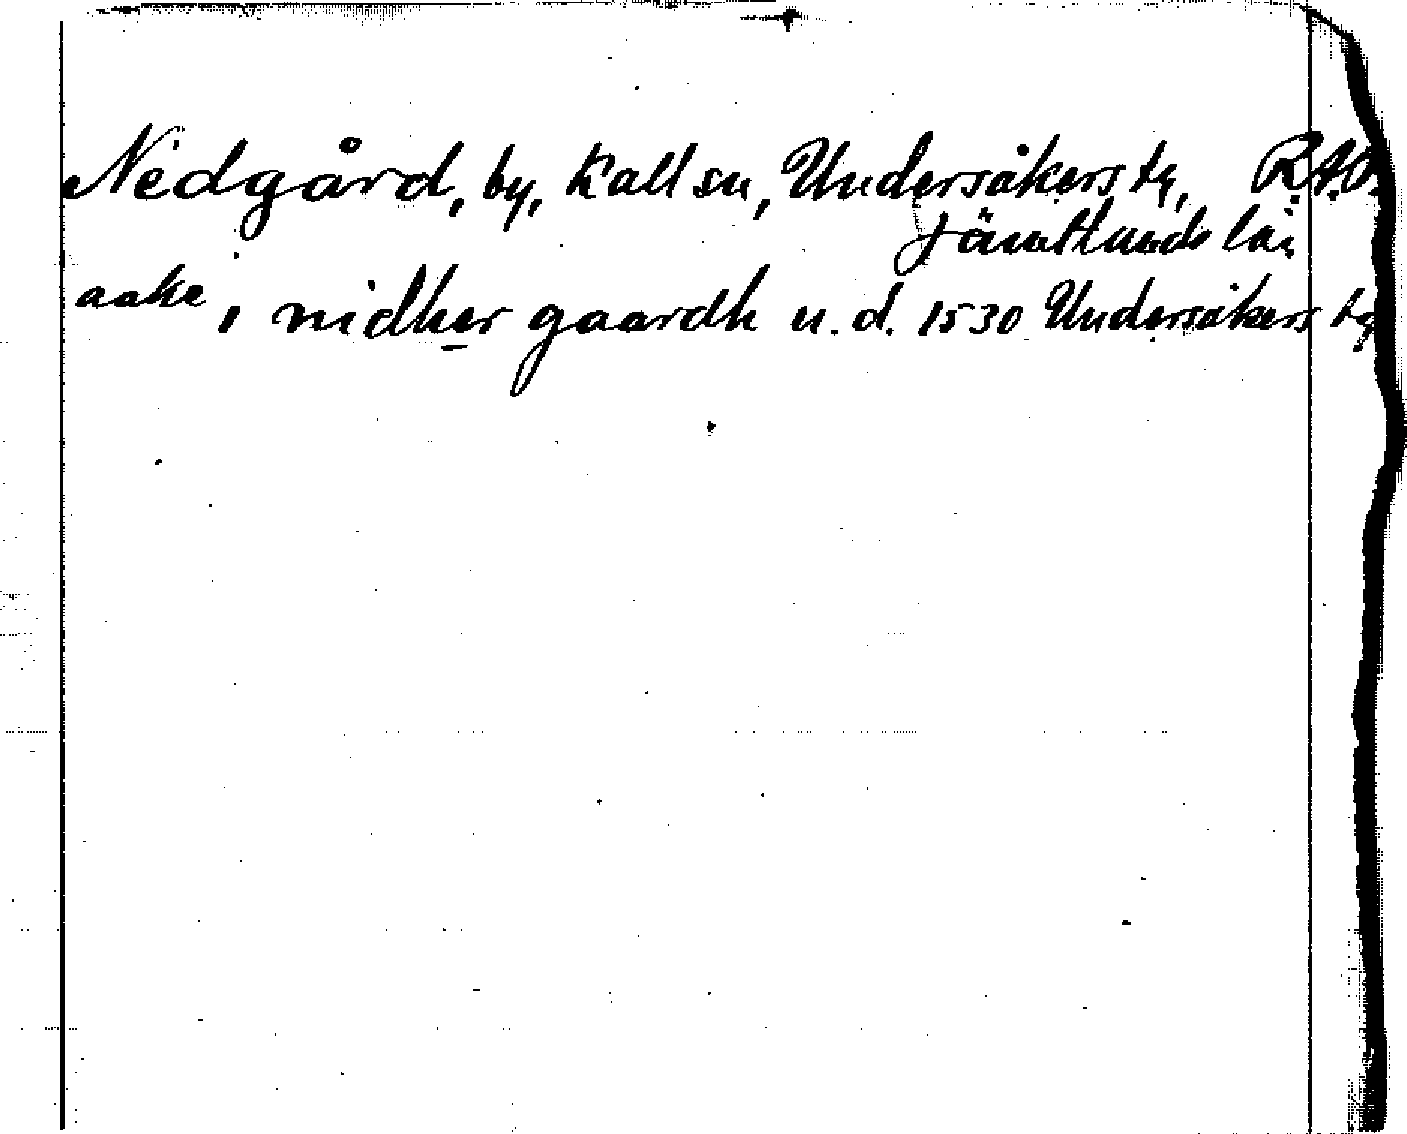 Nedgård, by, Kall sn, Undersåkers tg, R.A.O.
Jämtlands län
aake, nidher gaardh u. d. 1530 Undersåkers tg